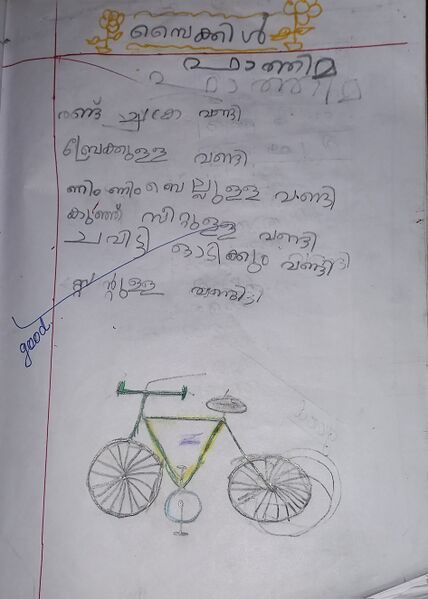 സൈക്കിൾ
ഫാത്തിമ
രണ്ട് ചക്ര വണ്ടി
ബ്രേക്കുള്ള വണ്ടി
ണിം ണിം ബെല്ലുള്ള വണ്ടി
കുഞ്ഞി സീറ്റുള്ള വണ്ടി
ചവിട്ടി ഓടിക്കും വണ്ടി
സ്റ്റന്റുള്ള വണ്ടി
good